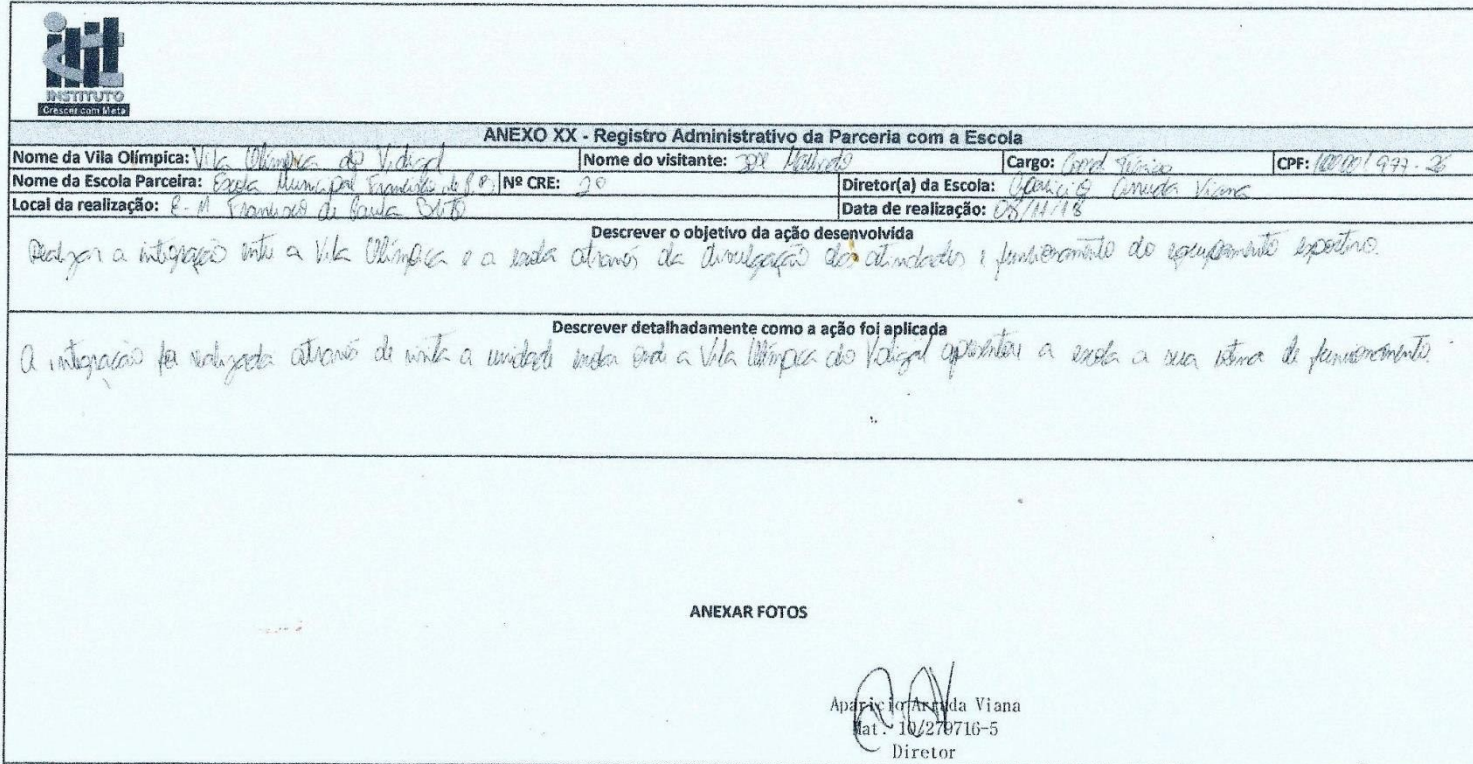 INSTITUTO
Crescer com Meta
ANEXO XX - Registro Administrativo da Parceria com a Escola
Nome da Vila Olímpica: Vila Olímpica do Vidigal Nome do visitante: José Cargo: Coord. Técnico CPF:
Nome da Escola Parceira: Escola Municipal Francisco de P. B. Nº CRE: 2º Diretor(a) da Escola: Aparício Arruda Viana
Local da realização: E. M Francisco de Paula Brito Data de realização: 08/11/18
Descrever o objetivo da ação desenvolvida
Realizar a integração entre a Vila Olímpica e a escola através da divulgação das atividades e funcionamento do equipamento esportivo.
Descrever detalhadamente como a ação foi aplicada
A integração foi realizada através de visita a unidade onde a Vila Olímpica do Vidigal apresentou a escola a sua de funcionamento.
ANEXAR FOTOS
Aparicio Arruda Viana
Mat. 10/279716-5
Diretor